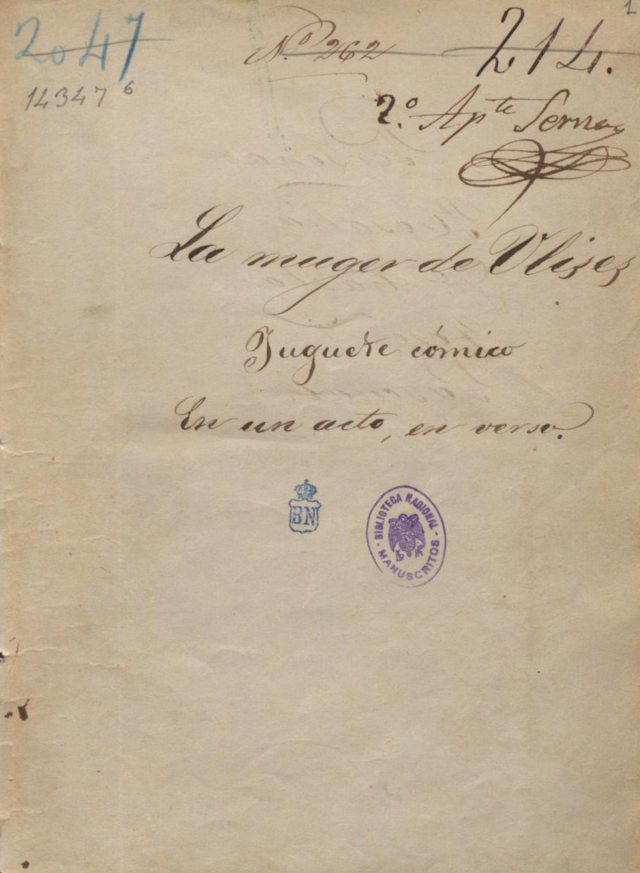 1
2047 Nº 262 214.
14347 6
2º Apte Serna
La muger de Ulises
Juguete cómico
En un acto, en verso.
BN
BIBLIOTECA NACIONAL
MANUSCRITOS